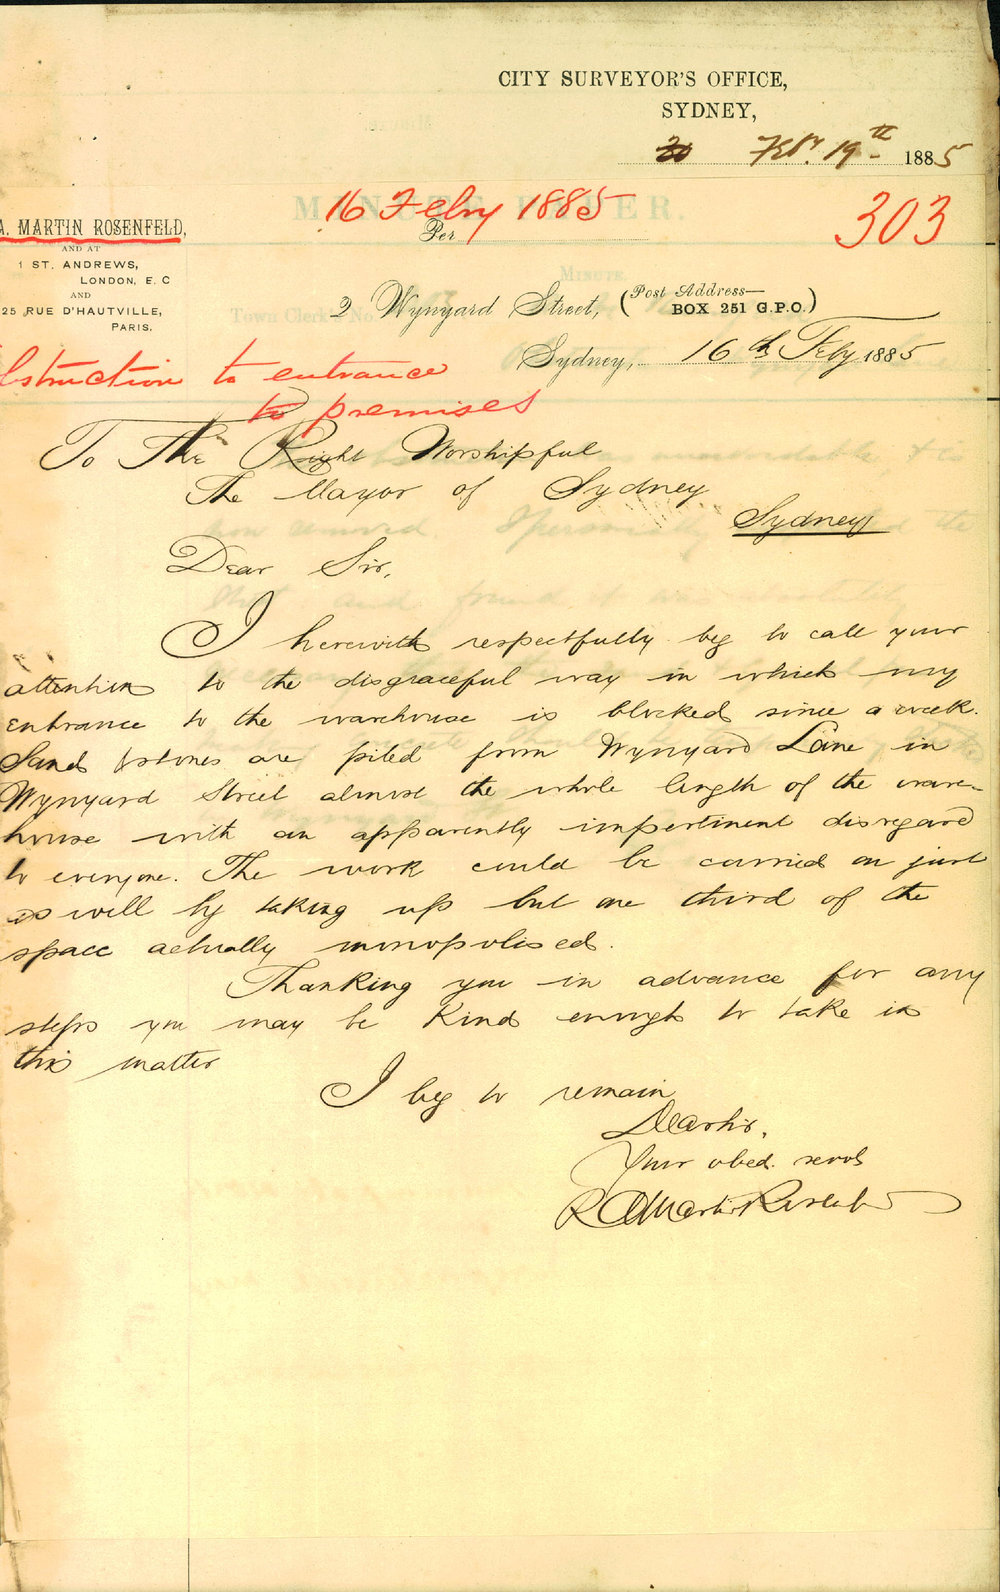 CITY SURVEYOR'S OFFICE,
SYDNEY,
20 Feby. 19th 1885
MINUTE PAPER.
16 Feby 1885
303
Per
A. MARTIN ROSENFELD,
AND AT
1 ST. ANDREWS,
LONDON, E. C
AND
25 RUE D'HAUTVILLE,
PARIS.
MINUTE.
Town Clerk's No.
2 Wynyard Street, (Post Address—
BOX 251 G.P.O.)
Sydney, 16th Feby 1885
bstruction to entrance
to premises
To The Right Worshipful
The Mayor of Sydney
Sydney
Dear Sir,
I herewith respectfully beg to call your
attention to the disgraceful way in which my
entrance to the warehouse is blocked since a week.
Sand & stones are piled from Wynyard Lane in
Wynyard Street almost the whole length of the ware-
house with an apparently impertinent disregard
to everyone. The work could be carried on just
as well by taking up but one third of the
space actually monopolised.
Thanking you in advance for any
steps you may be kind enough to take in
this matter
I beg to remain
Dear Sir,
Your obed. servt
R A Martin Rosenfeld